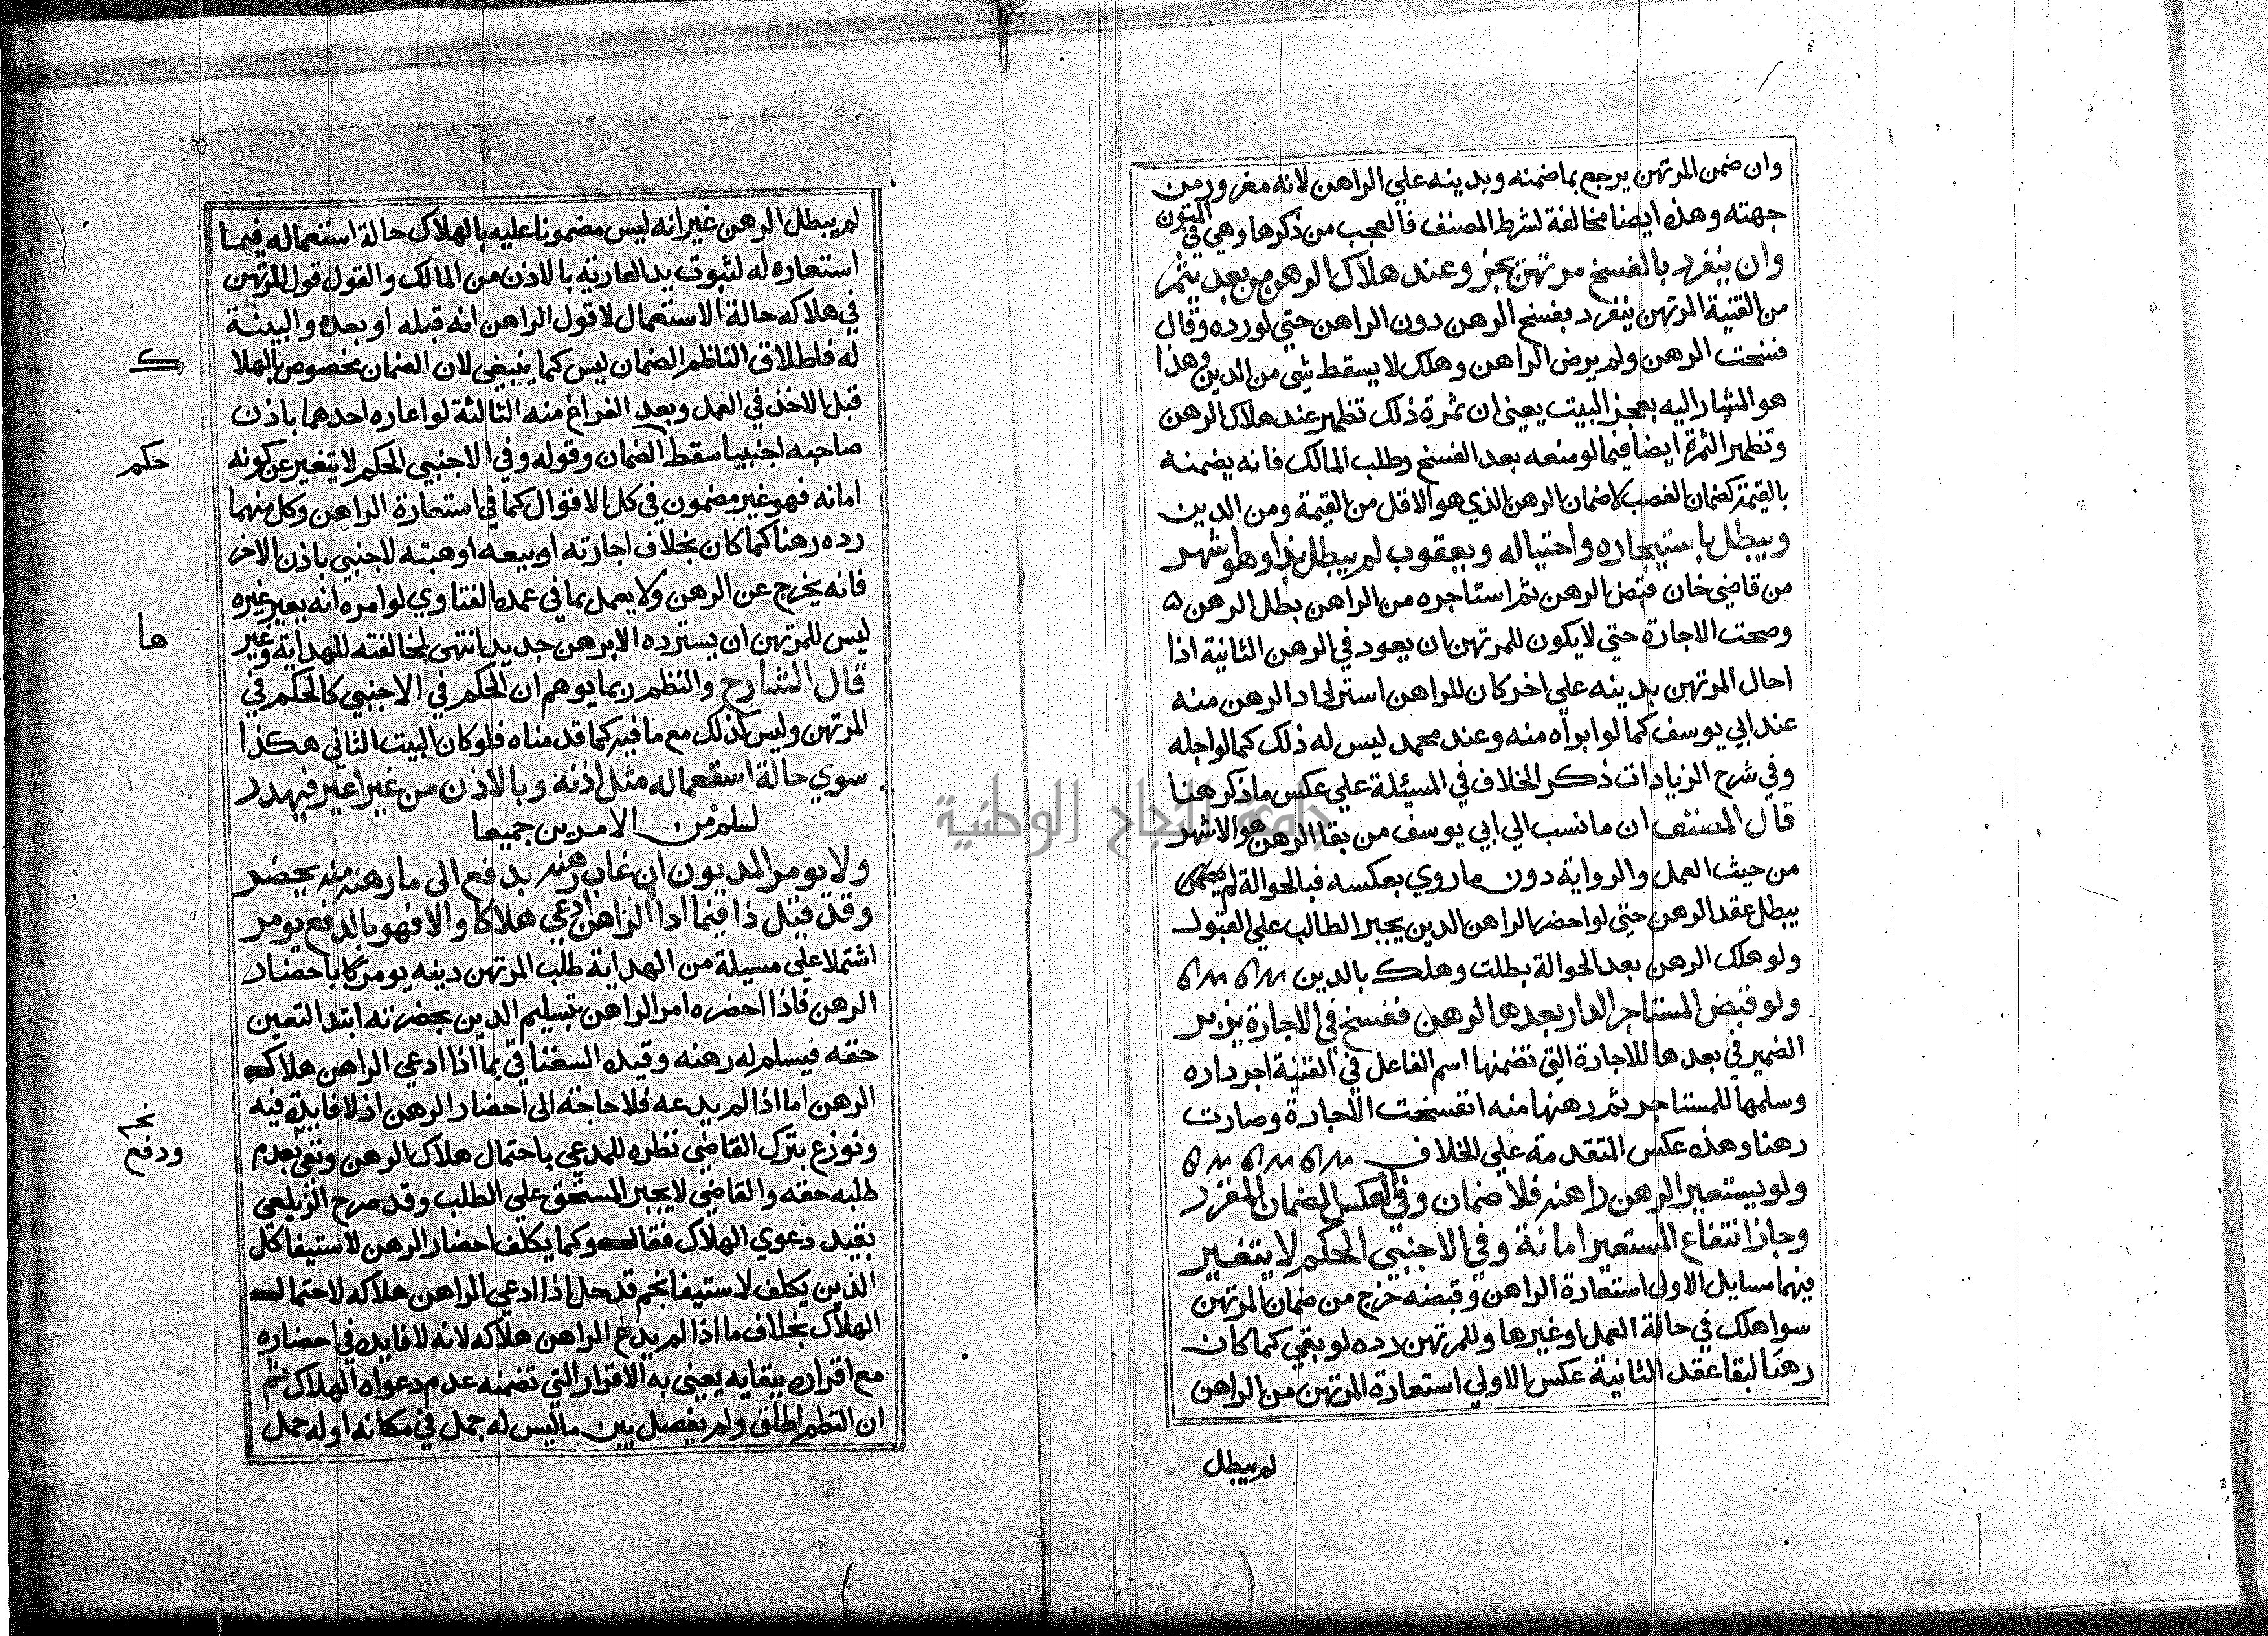 وان ضمن المرتهن يرجع بما ضمنه وبدينه علي الراهن لانه مغرور من
جهته وهذه ايضا مخالفة لشرط المصنف فالعجب من ذكرها وهي في المتون
وان ينفرد بالفسخ مرتهن يجز وعند هلاك الرهن من بعد يثمر
من القنية المرتهن ينفرد بفسخ الرهن دون الراهن حتي لو رده وقال
فسخت الرهن ولم يرض الراهن وهلك لا يسقط شي من الدين وهذا
هو المشار اليه بعجز البيت يعني ان ثمرة ذلك تظهر عند هلاك الرهن
وتظهر الثمرة ايضا فيما لو منعه بعد الفسخ وطلب المالك فانه يضمنه
بالقيمة كضمان الغصب لا ضمان الرهن الذي هو الاقل من القيمة ومن الدين
ويبطل باستيجاره واحتياله ويعقوب لم يبطل بذا وهو اشهر
من قاضي خان قبض الرهن ثم استاجره من الراهن بطل الرهن ه
وصحت الاجارة حتي لا يكون للمرتهن ان يعود في الرهن الثانية اذا
احال المرتهن بدينه علي اخر كان للراهن استرداد الرهن منه
عند ابي يوسف كما لو ابراه منه وعند محمد ليس له ذلك كما لو اجله
وفي شرح الزيادات ذكر الخلاف في المسئلة علي عكس ما ذكر هنا
قال المصنف ان ما نسب الي ابي يوسف من بقا الرهن هو الاشهر
من حيث العمل والرواية دون ما روي بعكسه فبالحوالة لم
يبطل عقد الرهن حتي لو احضر الراهن الدين يجبر الطالب علي القبول
ولو هلك الرهن بعد الحوالة بطلت وهلك بالدين
ولو قبض المستاجر الدار بعدها لرهن ففسخ في الاجارة يزبر
الضمير في بعدها للاجارة التي تضمنها اسم الفاعل في القنية اجر داره
وسلمها للمستاجر ثم رهنها منه انفسخت الاجارة وصارت
رهنا وهذه عكس المتقدمة علي الخلاف
ولو يستعير الرهن راهنه فلا ضمان وفي العكس الضمان المقرر
وجاز انتفاع المستعير امانة وفي الاجنبي الحكم لا يتغير
فيهما مسايل الاولي استعارة الراهن وقبضه خرج من ضمان المرتهن
سوا هلك في حالة العمل او غيرها وللمرتهن رده لو بقي كما كان
رهنا لبقا عقد الثانية عكس الاولي استعارة المرتهن من الراهن
لم يبطل
لم يبطل الرهن غير انه ليس مضمونا عليه بالهلاك حالة استعماله فيما
استعاره له لثبوت يد العارية بالاذن من المالك والقول قول المرتهن
في هلاكه حالة الاستعمال لا قول الراهن انه قبله او بعده والبينة
له فاطلاق الناظم الضمان ليس كما ينبغي لان الضمان مخصوص بالهلا
ك
قبل الاخذ في العمل وبعد الفراغ منه الثالثة لو اعاره احدهما باذن
صاحبه اجنبيا سقط الضمان وقوله وفي الاجنبي الحكم لا يتغير عن كونه
حكم
امانه فهو غير مضمون في كل الاقوال كما في استعارة الراهن وكل منهما
رده رهنا كما كان بخلاف اجارته او بيعه او هبته لاجنبي باذن الاخر
فانه يخرج عن الرهن ولا يعمل بما في عمدة الفتاوي لو امره انه يعير غيره
ليس للمرتهن ان يسترده الا برهن جديد انتهي لمخالفته للهداية وغير
ها
قال الشارح والنظم ربما يوهم ان الحكم في الاجنبي كالحكم في
المرتهن وليس كذلك مع ما فيه كما قدمناه فلو كان البيت الثاني هكذا
سوي حالة استعماله مثل اذنه وبالاذن من غير اعير فيهدر
لسلم من الامرين جميعا
ولا يومر المديون ان غاب رهنه بدفع الى ما رهنه منه يحضر
وقد قيل ذا فيما اذا الراهن ادعي هلاكا والا فهو بالدفع يومر
اشتملا علي مسيلة من الهداية طلب المرتهن دينه يومر باحضار
الرهن فاذا احضره امر الراهن بتسليم الدين بحضرته ابتدا لتعين
حقه فيسلم له رهنه وقيده السغناقي بما اذا ادعي الراهن هلاك
الرهن اما اذا لم يدعه فلا حاجة الى احضار الرهن اذ لا فايدة فيه
ونوزع بترك القاضي نظره للمدعي باحتمال هلاك الرهن ونفي بعدم
نخـ
ودفع
طلبه حقه والقاضي لا يجبر المستحق علي الطلب وقد صرح الزيلعي
بقيد دعوي الهلاك فقال وكما يكلف احضار الرهن لاستيفا كل
الدين يكلف لاستيفا نجم قد حل اذا ادعي الراهن هلاكه لاحتمال
الهلاك بخلاف ما اذا لم يدع الراهن هلاكه لانه لا فايدة في احضاره
مع اقراره ببقايه يعني به الاقرار التي تضمنه عدم دعواه الهلاك ثم
ان النظم اطلق ولم يفصل بين ما ليس له حمل في مكانه او له حمل
جامعة النجاح الوطنية